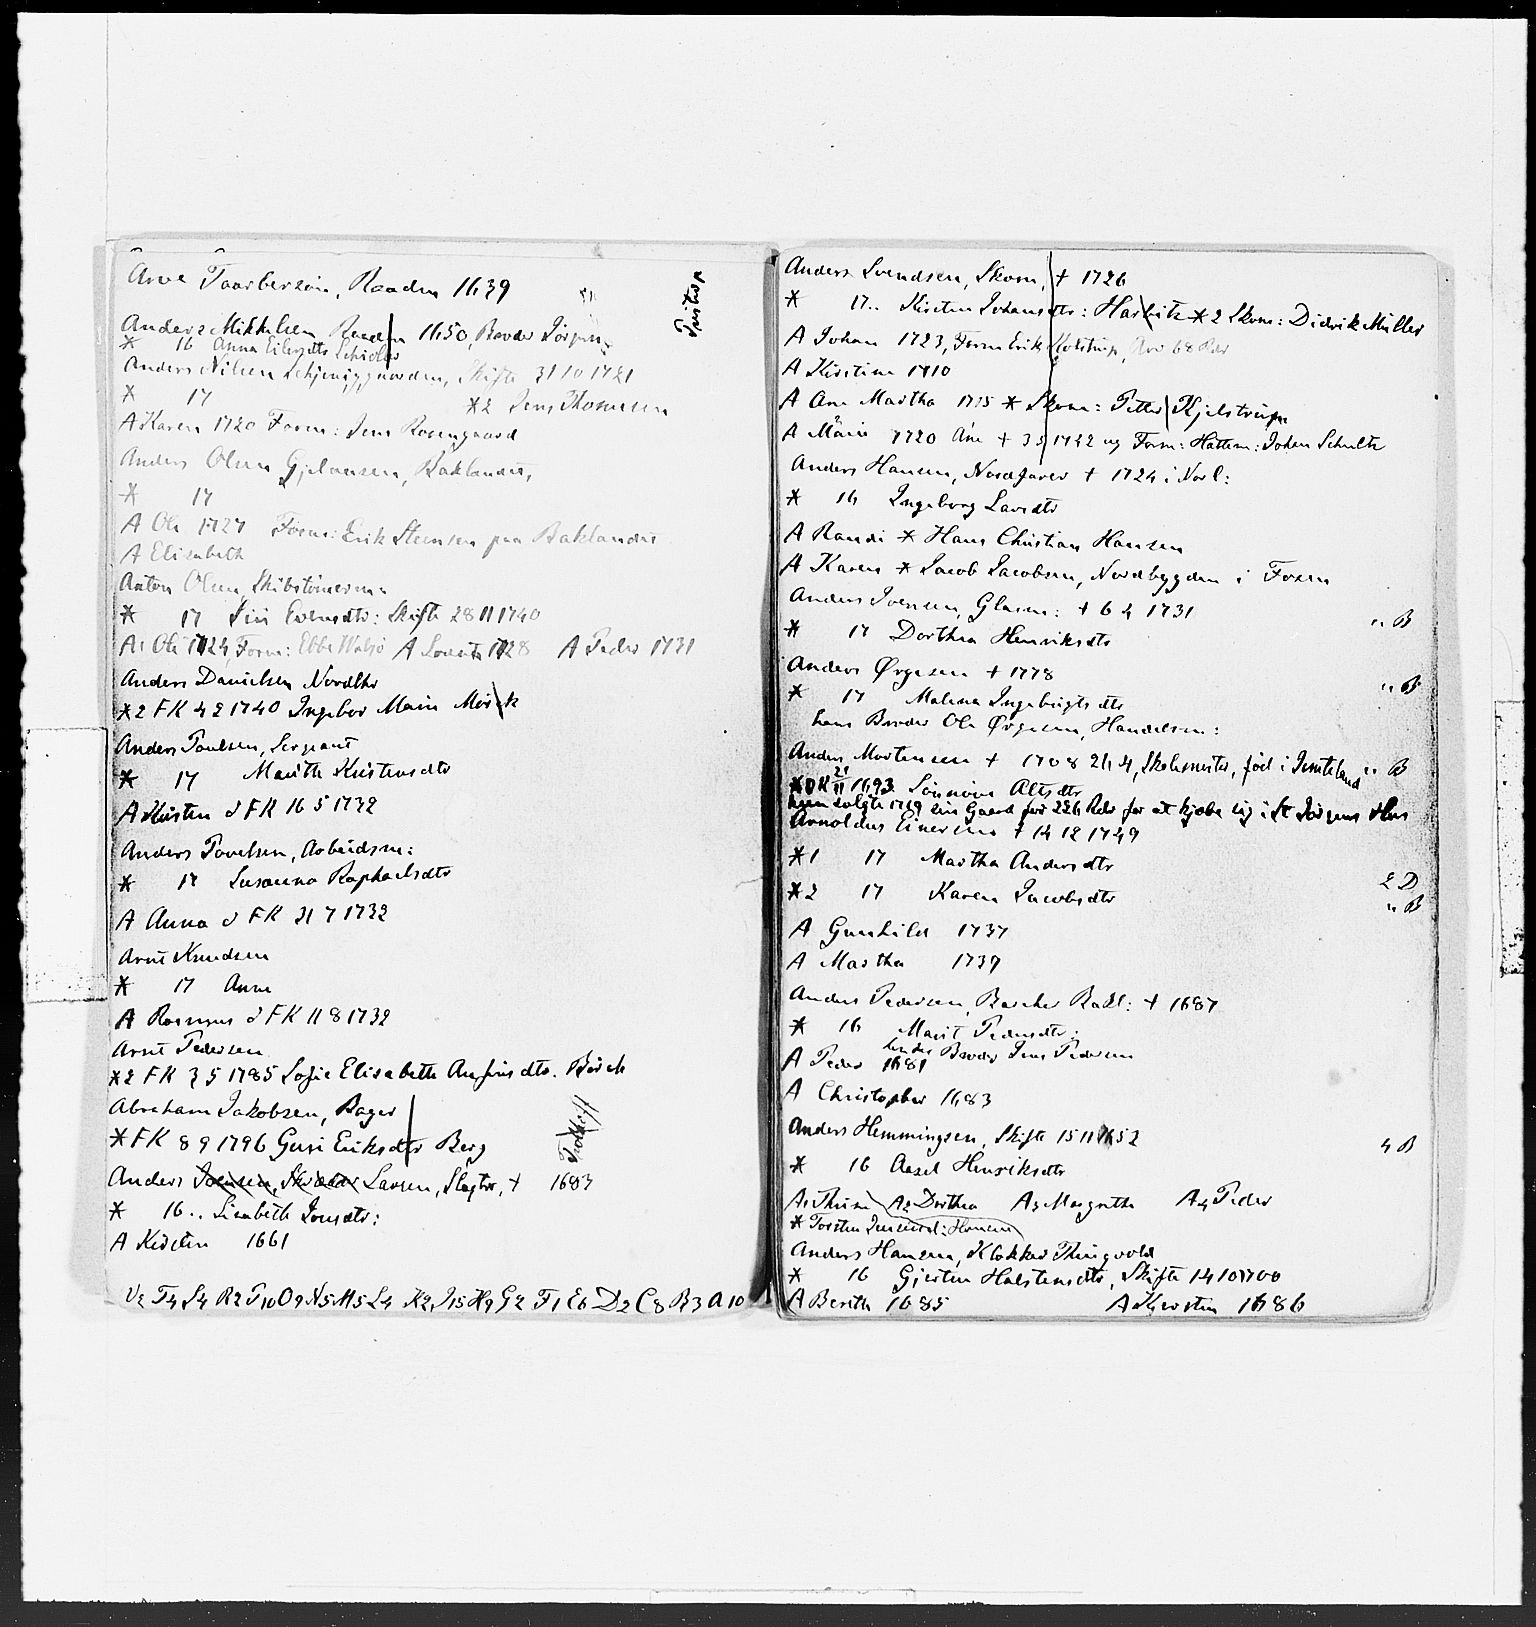 Arve Taarbersøn, Raadm 1639
Anders Mikkelsen Raadm 1650, Broder Jørgen
* 16 Anna Eilersdtr Schiøller
Anders Nilsen Schjeviggaarden, Skifte 31 10 1721
* 17 *2 Jens Thomesen
A Karen 1720 Form: Jens Rosengaard
Anders Olsen Gjelaasen, Baklandet,
* 17
A Ole 1727 Form: Erik Steensen paa Baklandet
A Elisabeth
Anton Olsen, Skibstømerm:
* 17 Siri Evensdtr: Skifte 28 11 1740
A1 Ole 1724, Form: Ebbe Walsø A Lorents 1728 A Peder 1731
Anders Danielsen Nordthr
*2 FK 4 2 1740 Ingebor Marie Mørck
Anders Poulsen, Sergeant
* 17 Marith Kristensdtr
A Kirsten d FK 16 5 1732
Anders Povelsen, Arbeidsm:
* 17 Susanna Raphaelsdtr
A Anna d FK 31 7 1732
Arnt Knudsen
* 17 Anne
A Rasmus d FK 11 8 1732
Arnt Pedersen
*2 FK 3 5 1785 Sofie Elisabeth Anfinsdtr. Birch
Abraham Jakobsen, Bager
*FK 8 9 1796 Guri Eriksdtr Berg
Anders Joensen, Skræder Larsen, Slagter, + 1683
* 16.. Lisabeth Jonsdtr:
A Kirsten 1661
V2 T4 S4 R2 P10 O9 N5 M5 L4 K2 J15 H9 G2 F1 E6 D2 C8 B3 A10
Anders Svendsen, Skom, + 1726
* 17.. Kirsten Johansdtr: Harbitz *2 Skom: Didrik Müller
A Johan 1723, Form Erik Kolstrup, Arv 68 Rdr
A Kirstine 1710
A Ane Martha 1715 * Skom: Petter Kjelstrup
A Marie 1720 Ane + 3 5 1742 og Form: Hattem: Johan Schultz
Anders Hansen, Nordfarer + 1724 i Nordl:
* 16 Ingeborg Larsdtr
A Randi * Hans Christian Hansen
A Karen * Jacob Jacobsen, Nordbygden i Fosen
Anders Iversen, Glasm: + 6 4 1731 " B
* 17 Dorthea Henriksdtr
Anders Ørgesen + 1778 " B
* 17 Malena Ingebrigtsdtr
hans Broder Ole Ørgesen, Handelsm:
Anders Mortensen + 1708 24 4, Skolemester, fød i Jemteland " B
*DK 21/11 1693 Sønnove Altsdtr
hun solgte 1719 sin Gaard for 226 Rdr for at kjøbe sig i St Jørgens Hus
Arnoldus Einersen + 14 12 1749
*1 17 Martha Andersdtr
*2 17 Karen Jacobsdtr 2 D
" B
A Gunhild 1737
A Martha 1739
Anders Pedersen, Barcher Bakl: + 1687
* 16 Marit Pedersdtr:
hendes Broder Jens Pedersen
A Peder 1681
A Christopher 1683
Anders Hemmingsen, Skifte 15 11 1652 4 B
* 16 Aasel Henriksdtr
A1 Thrine A2 Dorthea A3 Margrethe A4 Peder
* Torsten Hansen
Anders Hansen, Klokker Thingvold
* 16 Gjerten Halstensdtr, Skifte 14 10 1700
A Berith 1685 A Kjersten 1686